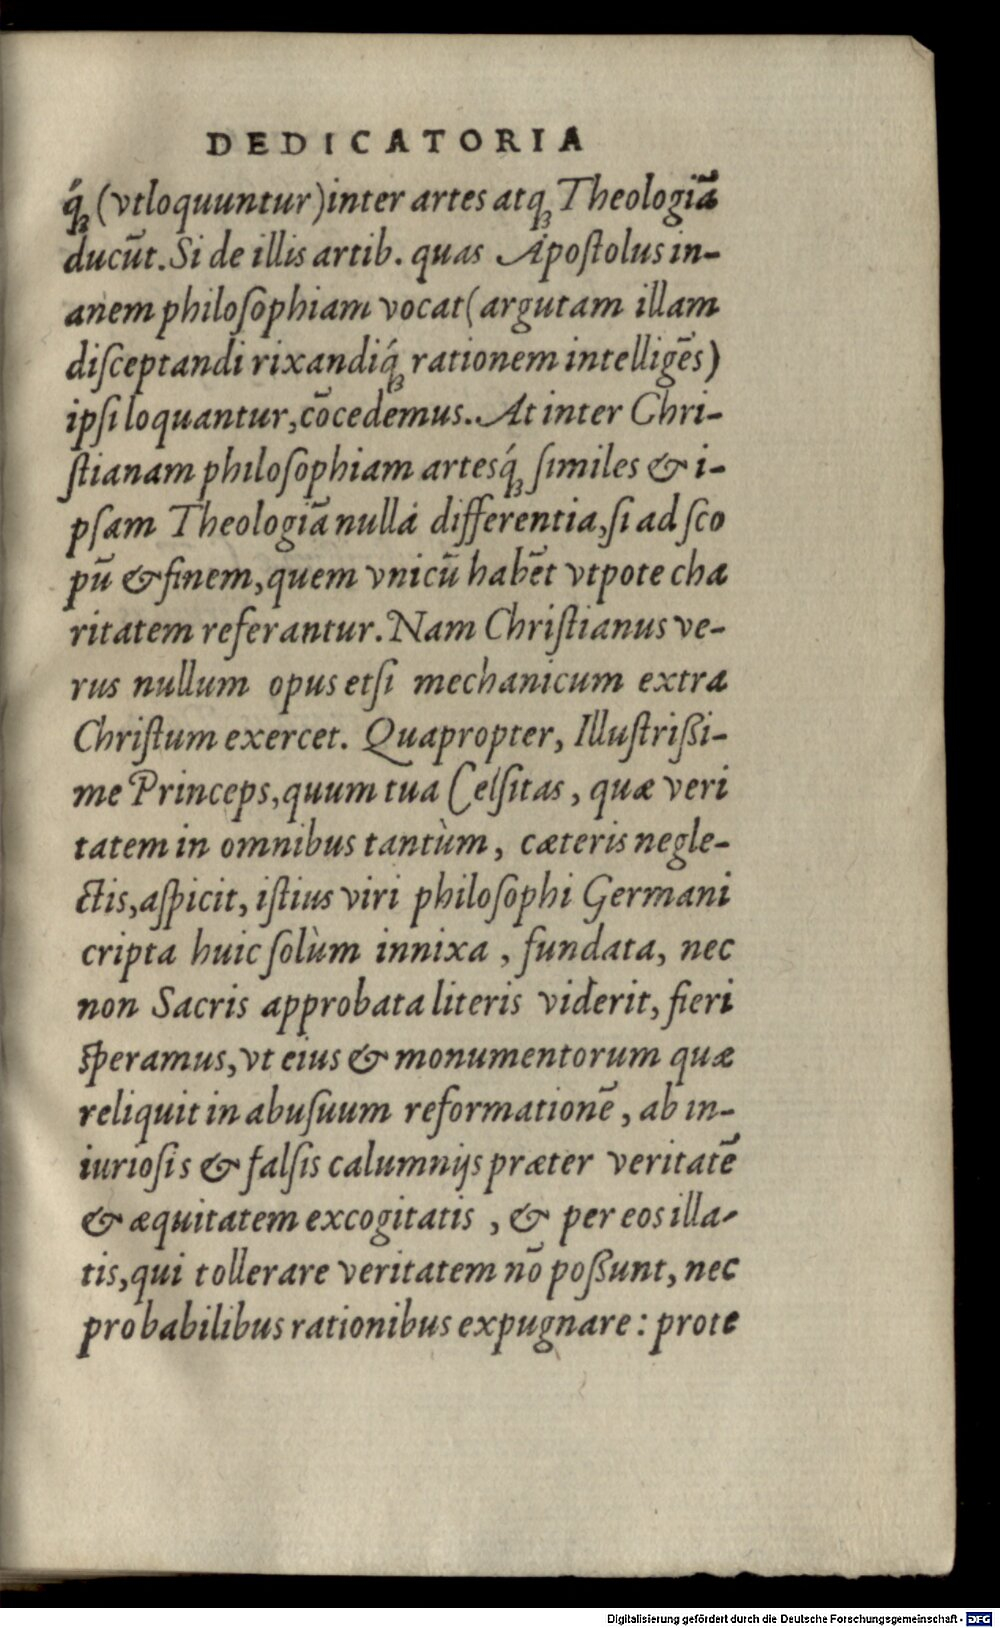 DEDICATORIA
q́ꝫ (vtloquuntur) inter artes atqꝫ Theologiā
ducūt. Si de illis artib. quas Apoſtolus in-
anem philoſophiam vocat (argutam illam
diſceptandi rixandiq́ꝫ rationem intelligēs)
ipſi loquantur, cōcedemus. At inter Chri-
ſtianam philoſophiam artesq́ꝫ ſimiles & i-
pſam Theologiā nulla differentia, ſi ad ſco
pū & finem, quem vnicū habēt vtpote cha
ritatem referantur. Nam Chriſtianus ve-
rus nullum opus etſi mechanicum extra
Chriſtum exercet. Quapropter, Illuſtrißi-
me Princeps, quum tua Celſitas, quæ veri
tatem in omnibus tantùm, cæteris negle-
ctis, aſpicit, iſtius viri philoſophi Germani
cripta huic ſolùm innixa, fundata, nec
non Sacris approbata literis viderit, fieri
ſperamus, vt eius & monumentorum quæ
reliquit in abuſuum reformationē, ab in-
iurioſis & falſis calumnijs præter veritatē
& æquitatem excogitatis, & per eos illa-
tis, qui tollerare veritatem nō poßunt, nec
probabilibus rationibus expugnare: prote
Digitalisierung gefördert durch die Deutsche Forschungsgemeinschaft - DFG